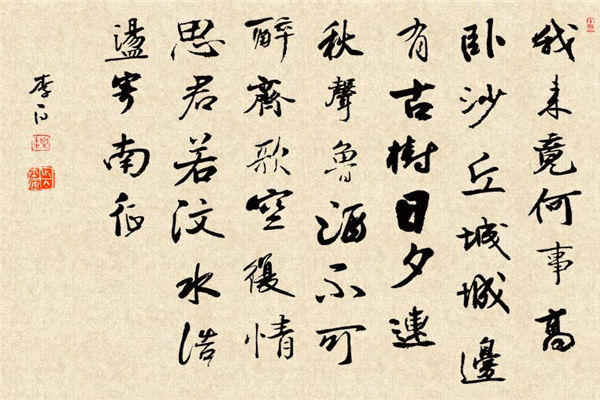 我来竟何事高
卧沙丘城城邊
有古樹日夕連
秋聲魯酒不可
醉齊歌空復情
思君若汶水浩
盪寄南征
李白